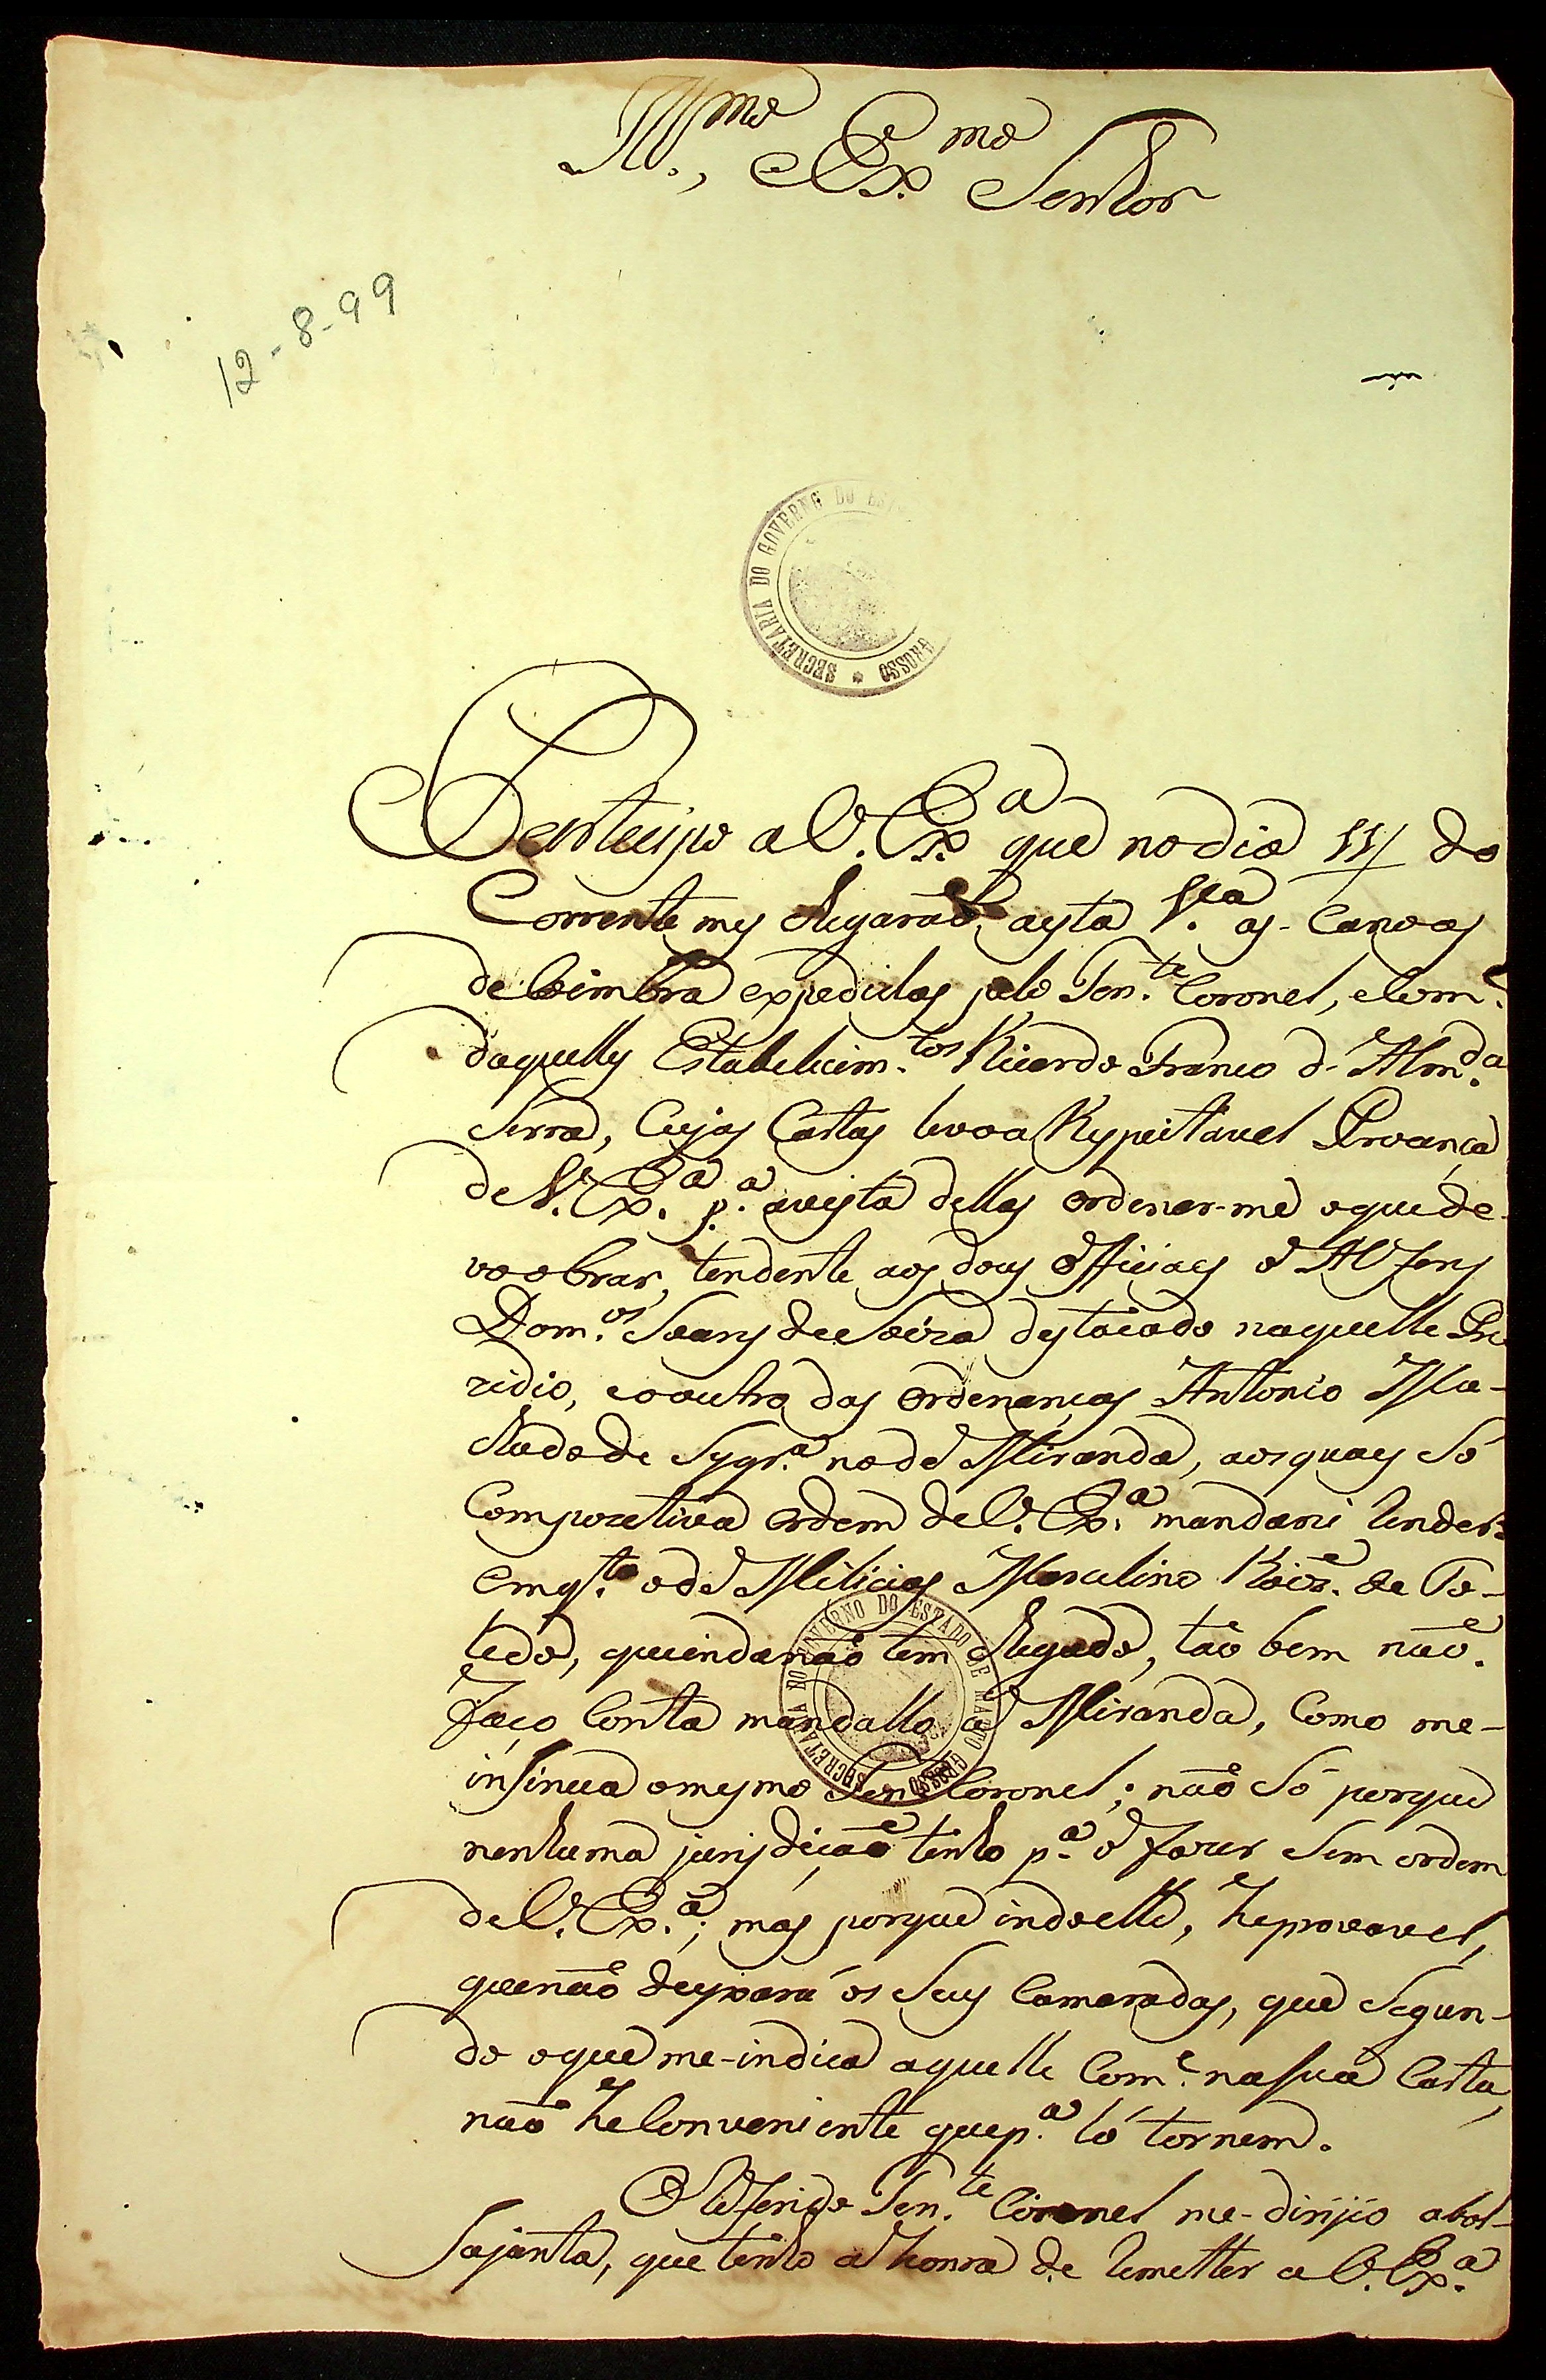 Ill.mo, Ex.mo Senhor
12-8-99
SECRETARIA DO GOVERNO DO EST GROSSO
Partecipo a V. Ex.a que no dia 11/ do
Corrente mes chegaraõ aesta V.la as Canoas
de Coimbra expedidas pelo Ten.te Coronel, e Com.e
daquelles Estabelicim.tos Ricardo Franco d'Alm.da
Serra, Cujas Cartas levo a Respeitavel Prezença
de V. Ex.a p.a avista dellas ordenar-me oque de-
vo obrar, tendente aos dous officiaes o Alferes
Dom.os Soares de Soiza destacado naquelle Pre
zidio, eooutro das ordenanças Antonio Ma-
chado de Syqr.a no de Miranda, aos quaes Só
Com pozetiva ordem de V. Ex.a mandarei render:
emq.to o de Milicias Marcelino Roiz. de To-
ledo, queinda naõ tem chegado, taõ bem naõ
faço Conta mandallo a Miranda, Como me-
insinua omesmo Ten.e Coronel; naõ Só porque
nenhuma jurisdiçaõ tenho p.a o fazer Sem ordem
de V. Ex.a; mas porque indo elle, he provavel,
quenaõ deyxará os Seus Camaradas, que Segun-
do oque me-indica aquelle Com.e nasua Carta,
naõ he Conveniente que p.a lá tornem.
SECRETARIA DO GOVERNO DO ESTADO DE MATO GROSSO
O Referido Ten.te Coronel me-dirijio abol-
sajunta, que tenho a honra de Remetter a V. Ex.a